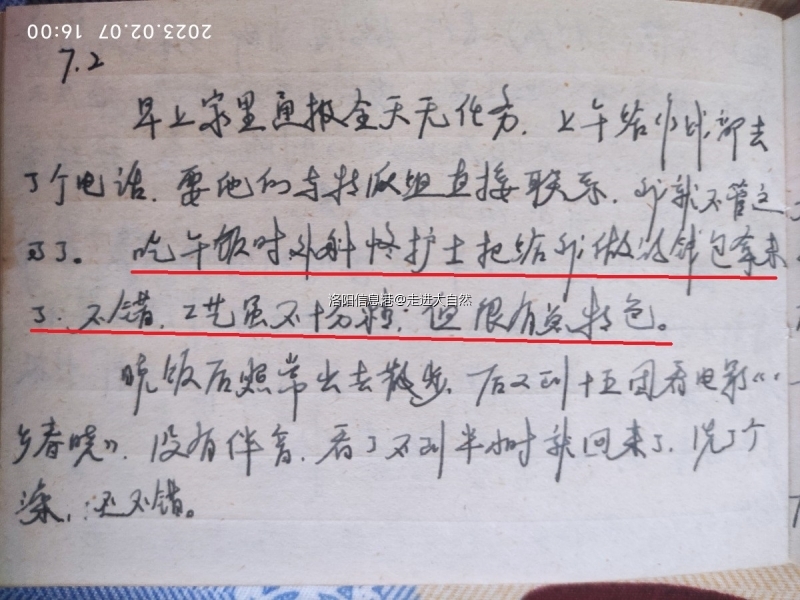 2023.02.07 16:00
7.2
早上家里通报全天无任务。上午给作战部去
了个电话,要他们与特派组直接联系,我就不管这
了。吃午饭时外科佟护士把给我做的钱包拿来
洛阳信息港@走进大自然
了,不错,工艺虽不十分精,但很有点特色。
晚饭后照常出去散步,后又到十五团看电影《
乡春晓》,没有伴音,看了不到半小时就回来了,洗了个
澡,还不错。